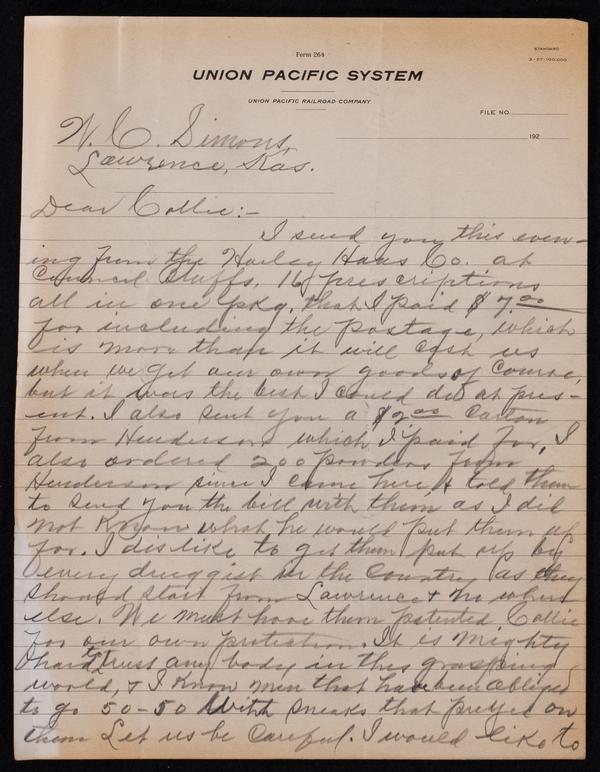 Form 264
STANDARD
2-27-100,000
UNION PACIFIC SYSTEM
UNION PACIFIC RAILROAD COMPANY
FILE NO.
192
W. C. Simons,
Lawrence, Kas.
Dear Collie:-
I send you this even-
ing from the Harley Haas Co. at
Council Bluffs, 16 prescriptions
all in one pkg. that I paid $7.00
for including the postage, which
is more than it will cost us
when we get our own goods of course,
but it was the best I could do at pres-
ent. I also sent you a $2.00 carton
from Hendersons which I paid for, I
also ordered 200 powders from
Henderson since I came here, & told them
to send you the bill with them as I did
not know what he would put them up
for. I dislike to get them put up by
every druggist in the country as they
should start from Lawrence & no where
else. We must have them patented Collie
for our own protection. It is mighty
hard to trust any body in this grasping
world, & I know men that have been obliged
to go 50-50 with sneaks that preyed on
them Let us be careful. I would like to